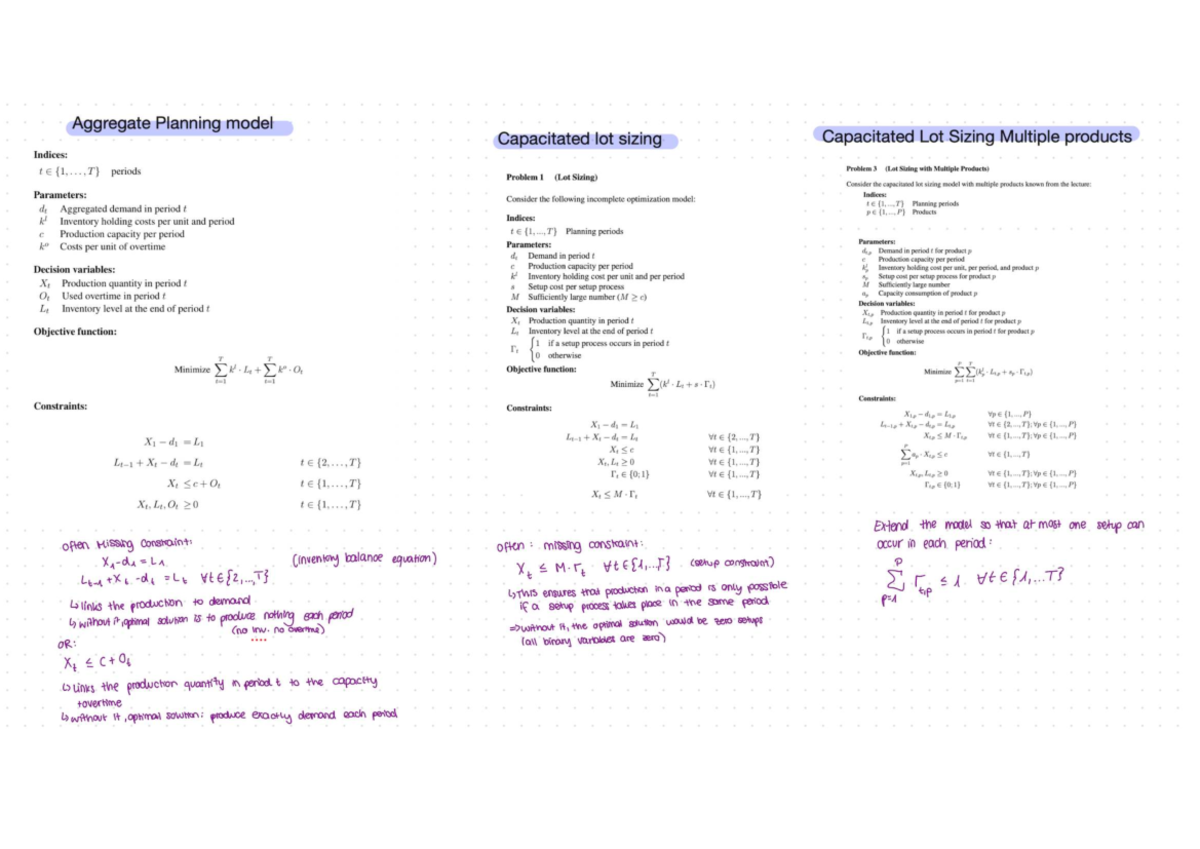 Aggregate Planning model
Indices:
t ∈ {1, . . . , T} periods
Parameters:
d_t Aggregated demand in period t
k^l Inventory holding costs per unit and period
c Production capacity per period
k^o Costs per unit of overtime
Decision variables:
X_t Production quantity in period t
O_t Used overtime in period t
L_t Inventory level at the end of period t
Objective function:
Minimize ∑_{t=1}^{T} k^l · L_t + ∑_{t=1}^{T} k^o · O_t
Constraints:
X_1 − d_1 = L_1
L_{t−1} + X_t − d_t = L_t t ∈ {2, . . . , T}
X_t ≤ c + O_t t ∈ {1, . . . , T}
X_t, L_t, O_t ≥ 0 t ∈ {1, . . . , T}
often Missing Constraint:
X_1-d_1 = L_1 (inventory balance equation)
L_{t-1} + X_t - d_t = L_t ∀t∈{2,..,T}
↳ links the production to demand
↳ without it, optimal solution is to produce nothing each period
(no inv. no overtime)
OR:
X_t ≤ C + O_t
↳ Links the production quantity in period t to the capacity
+overtime
↳ without it, optimal solution: produce exactly demand each period
Capacitated lot sizing
Problem 1 (Lot Sizing)
Consider the following incomplete optimization model:
Indices:
t ∈ {1, ..., T} Planning periods
Parameters:
d_t Demand in period t
c Production capacity per period
k^l Inventory holding cost per unit and per period
s Setup cost per setup process
M Sufficiently large number (M ≥ c)
Decision variables:
X_t Production quantity in period t
L_t Inventory level at the end of period t
Γ_t { 1 if a setup process occurs in period t
0 otherwise
Objective function:
Minimize ∑_{t=1}^{T} (k^l · L_t + s · Γ_t)
Constraints:
X_1 − d_1 = L_1
L_{t−1} + X_t − d_t = L_t ∀t ∈ {2, ..., T}
X_t ≤ c ∀t ∈ {1, ..., T}
X_t, L_t ≥ 0 ∀t ∈ {1, ..., T}
Γ_t ∈ {0; 1} ∀t ∈ {1, ..., T}
X_t ≤ M · Γ_t ∀t ∈ {1, ..., T}
often : missing constraint:
X_t ≤ M · Γ_t ∀t∈{1,..,T} (setup constraint)
↳ This ensures that production in a period is only possible
if a setup process takes place in the same period
⇒ without it, the optimal solution would be zero setups
(all binary variables are zero)
Capacitated Lot Sizing Multiple products
Problem 3 (Lot Sizing with Multiple Products)
Consider the capacitated lot sizing model with multiple products known from the lecture:
Indices:
t ∈ {1, ..., T} Planning periods
p ∈ {1, ..., P} Products
Parameters:
d_{t,p} Demand in period t for product p
c Production capacity per period
k^l_p Inventory holding cost per unit, per period, and product p
s_p Setup cost per setup process for product p
M Sufficiently large number
a_p Capacity consumption of product p
Decision variables:
X_{t,p} Production quantity in period t for product p
L_{t,p} Inventory level at the end of period t for product p
Γ_{t,p} { 1 if a setup process occurs in period t for product p
0 otherwise
Objective function:
Minimize ∑_{p=1}^{P} ∑_{t=1}^{T} (k^l_p · L_{t,p} + s_p · Γ_{t,p})
Constraints:
X_{1,p} − d_{1,p} = L_{1,p} ∀p ∈ {1, ..., P}
L_{t−1,p} + X_{t,p} − d_{t,p} = L_{t,p} ∀t ∈ {2, ..., T}; ∀p ∈ {1, ..., P}
X_{t,p} ≤ M · Γ_{t,p} ∀t ∈ {1, ..., T}; ∀p ∈ {1, ..., P}
∑_{p=1}^{P} a_p · X_{t,p} ≤ c ∀t ∈ {1, ..., T}
X_{t,p}, L_{t,p} ≥ 0 ∀t ∈ {1, ..., T}; ∀p ∈ {1, ..., P}
Γ_{t,p} ∈ {0; 1} ∀t ∈ {1, ..., T}; ∀p ∈ {1, ..., P}
Extend the model so that at most one setup can
occur in each period :
∑_{p=1}^{P} Γ_{t,p} ≤ 1 ∀t∈{1,...T}